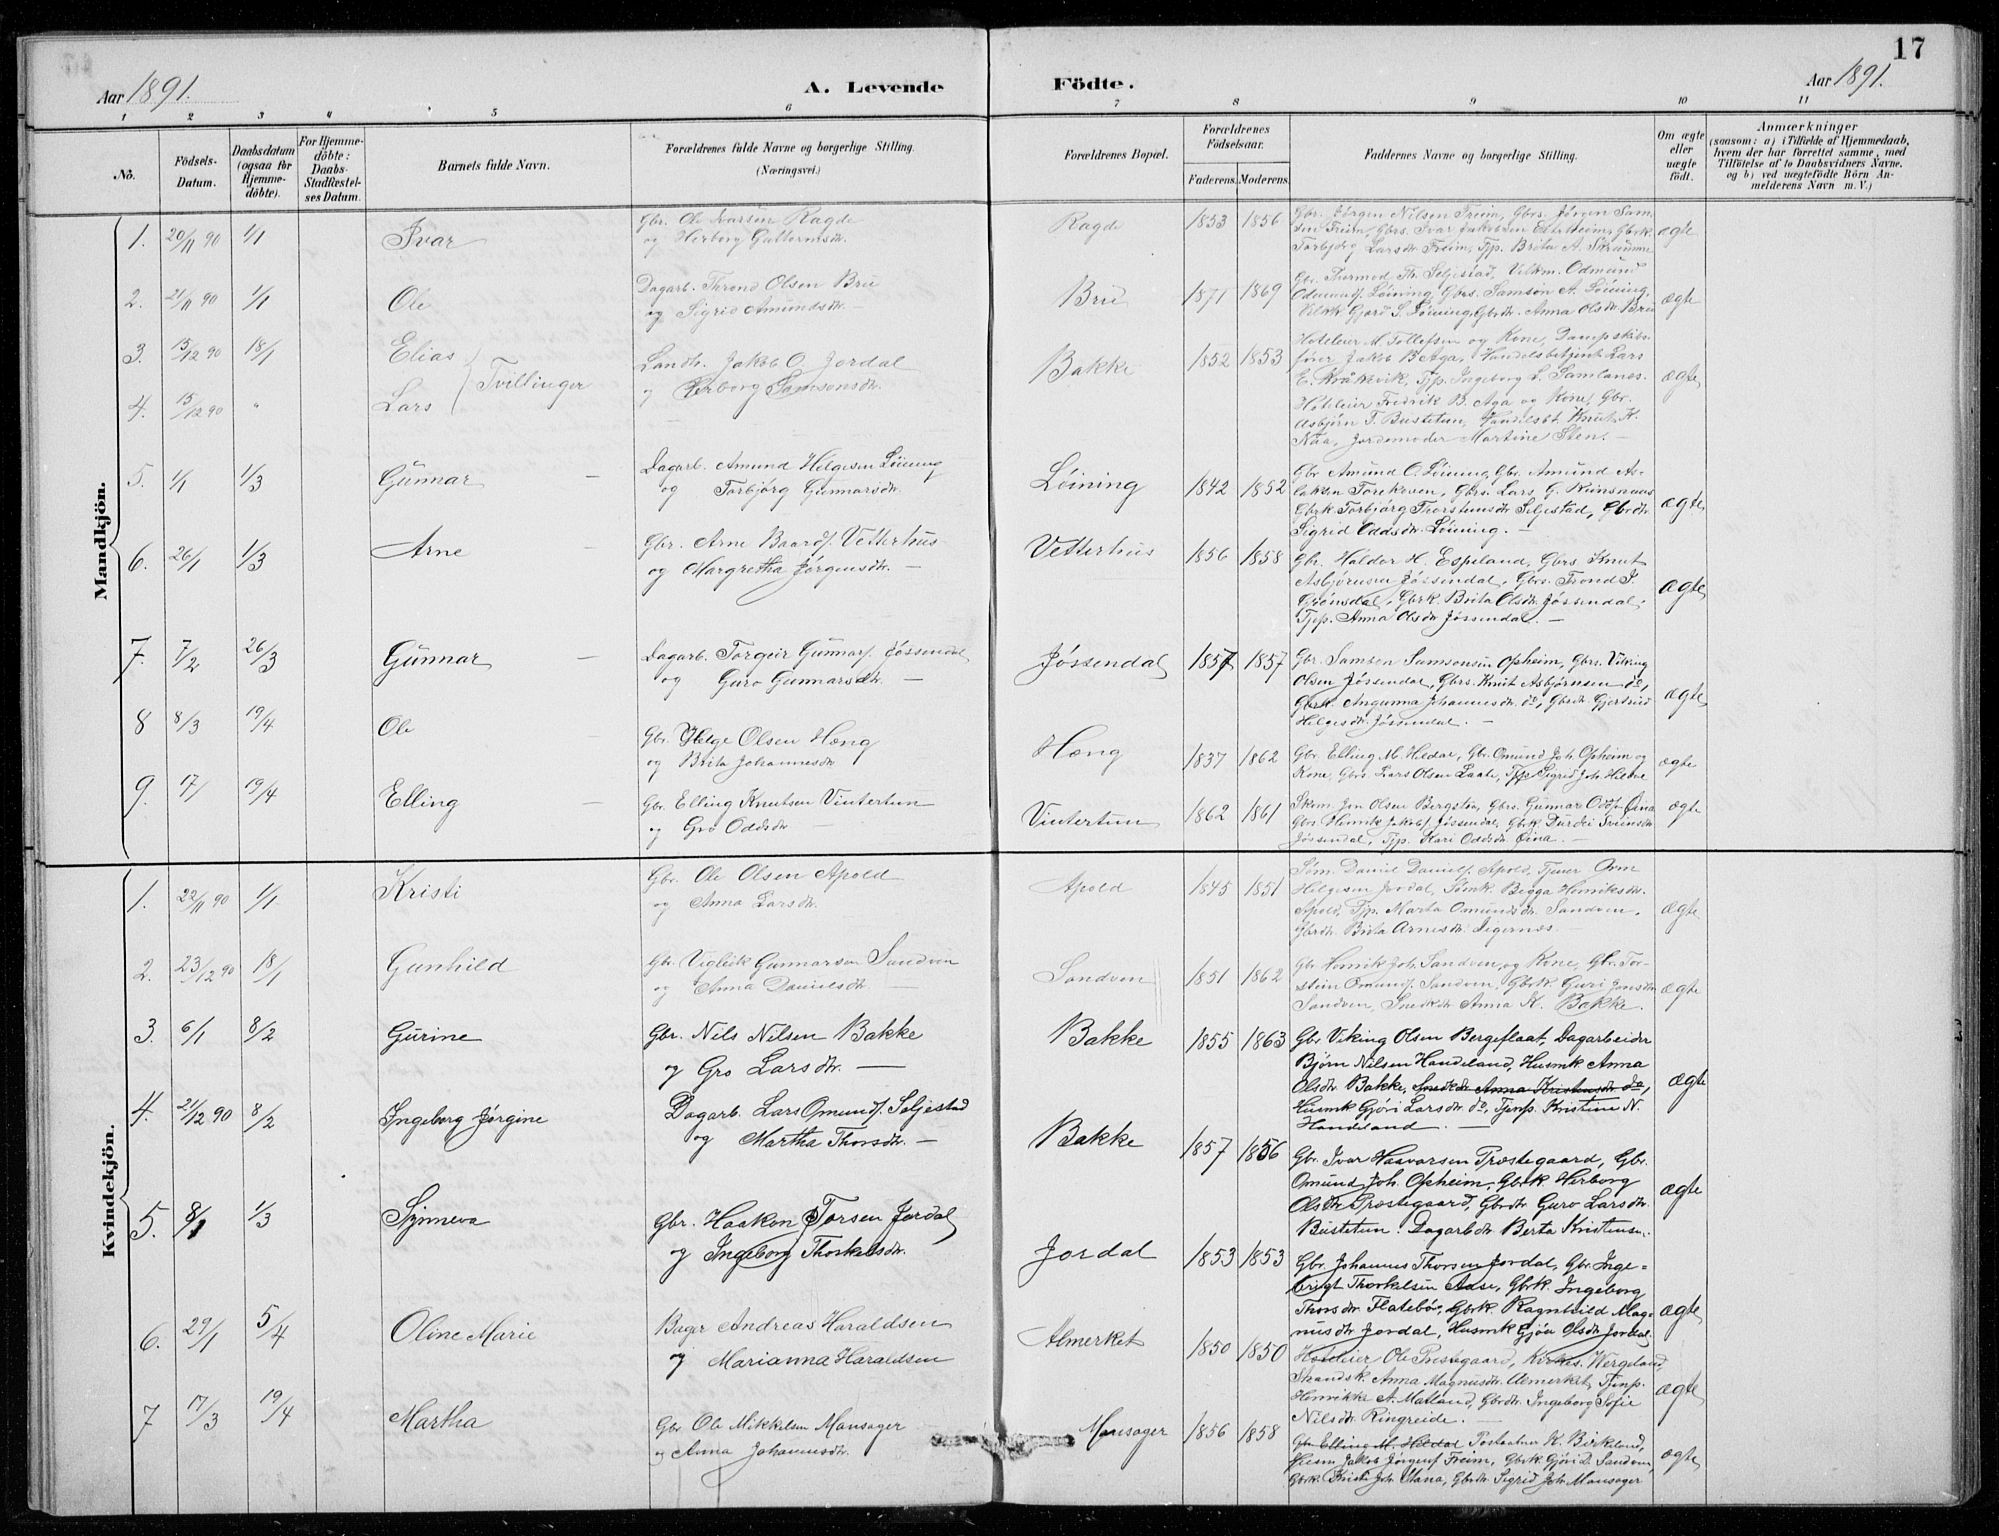 17
Aar 1891.
A. Levende Födte.
Aar 1891.
1 2 3 4 5 6 7 8 9 10 11
No.
Födsels-Datum.
Daabsdatum (ogsaa for Hjemme-döbte).
For Hjemme-döbte: Daabs-Stadfæstel-ses Datum.
Barnets fulde Navn.
Forældrenes fulde Navne og borgerlige Stilling. (Næringsvei.)
Forældrenes Bopæl.
Forældrenes Födselsaar.
Faderens. Moderens.
Faddernes Navne og borgerlige Stilling.
Om ægte eller uægte födt.
Anmærkninger
(saasom: a) i Tilfælde af Hjemmedaab, hvem der har forrettet samme, med Tilföielse af to Daabsvidners Navne, og b) ved uægtefödte Börn An-melderens Navn m. V.)
Mandkjön.
1. 20/11 90 1/1 Ivar
Gbr. Ole Ivarsen Ragde
og Herborg Guttormsdr.
Ragde 1853 1856
Gbr. Jørgen Nilsen Freim, Gbrs. Jørgen Sam-
sen Freim, Gbrs. Ivar Jakobsen Eitrheim, Gbrk.
Torbjørg Larsdr. Freim, Tjp. Brita A. Skramme
ægte
2. 21/11 90 1/1 Ole
Dagarb. Thrond Olsen Bru
og Sigrid Amundsdr.
Bru 1871 1869
Gbr. Tormod Th. Seljestad, Velkm. Odmund
Odmunds. Løining, Gbrs. Samson A. Løining,
Gjørd S. Løining, Gbrdr. Anna Olsdr. Bru
ægte
3. 15/12 90 18/1 Elias
4. 15/12 90 " Lars
Tvillinger
Landh. Jakob O. Jordal
og Herborg Samsonsdr.
Bakke 1852 1853
Hoteleier M. Tollefsen og Kone, Dampskibs-
fører Jakob B. Aga, Handelsbetjent Lars
E. Kråkevik, Tjp. Ingeborg S. Samlanes.
Hoteleier Fredrik B. Aga og Kone, Gbr.
Asbjørn T. Bustetun, Handelsbt. Knut K.
Naa, Jordemoder Martine Sten. —
ægte
5. 1/1 1/3 Gunnar —
Dagarb. Amund Helgesen Løining
og Torbjørg Gunnarsdr.
Løining 1842 1852
Gbr. Amund O. Løining, Gbr. Amund As-
laksen Torekoven, Gbrs. Lars G. Reinsnaas
Gbrk. Torbjørg Thorstensdr. Seljestad, Gbrdr.
Sigrid Oddsdr. Løining. —
ægte
6. 26/1 1/3 Arne —
Gbr. Arne Baards. Vetterhus
og Margretha Jørgensdr. —
Vetterhus 1856 1858
Gbr. Haldor H. Espeland, Gbrs. Knut
Asbjørnsen Jøssendal, Gbrs. Trond J.
Grønsdal, Gbrk. Brita Olsdr. Jøssendal,
Tjp. Anna Olsdr. Jøssendal. —
ægte
7. 7/2 26/3 Gunnar —
Dagarb. Torgeir Gunnars. Jøssendal
og Guro Gunnarsdr. —
Jøssendal 1857 1857
Gbr. Samson Samsonsen Opheim, Gbrs. Viking
Olsen Jøssendal, Gbrs. Knut Asbjørnsen do,
Gbrk. Angunna Johannesdr. do, Gbrdr. Gjertrud
Helgesdr. Jøssendal. —
ægte
8 8/3 19/4 Ole —
Gbr. Helge Olsen Hæng
og Brita Johannesdr.
Hæng 1837 1862
Gbr. Elling M. Hildal, Gbr. Omund Joh. Opheim og
Kone, Gbrs. Lars Olsen Laate, Tjp. Sigrid Joh.
ægte
9. 17/ 19/4 Elling —
Gbr. Elling Knutsen Vintertun
og Gro Oddsdr. —
Vintertun 1862 1861
Skom. Jon Olsen Bergstø, Gbrs. Gunnar Odds. Øina
Gbrs. Henrik Jakobs. Jøssendal, Gbrk. Durdei Sveinsdr.
Jøssendal, Tjp. Kari Oddsdr. Øina. —
ægte
Kvindekjön.
1. 22/11 90 1/1 Kristi
Gbr. Ole Olsen Apold
og Anna Larsdr.
Apold 1845 1851
Søm. Daniel Daniels. Apold, Tjener Orm
Helgesen Jordal, Sømk. Begga Henriksdr.
Apold, Tjp. Marta Omundsdr. Sandven,
Gbrdr. Brita Arnesdr. Digernæs. —
ægte
2. 23/12 90 18/1 Gunhild
Gbr. Vigleik Gunnarsen Sandven
og Anna Danielsdr. —
Sandven 1851 1862
Gbr. Henrik Joh. Sandven og Kone, Gbr. Tor-
stein Omunds. Sandven, Gbrk. Guri Jonsdr.
Sandven, Snedkdr. Anna K. Bakke.
ægte
3. 6/1 8/2 Gurine
Gbr. Nils Nilsen Bakke
og Gro Larsdr. —
Bakke 1855 1863
Gbr. Viking Olsen Bergeflaat, Dagarbeider
Bjørn Nilsen Handeland, Husmk. Anna
Olsdr. Bakke, Snedkdr. Anna Kristensdr. do,
Husmk. Gjøri Larsdr. do, Tjenp. Kristine N.
Handeland. —
ægte
4. 21/12 90 8/2 Ingeborg Jørgine
Dagarb. Lars Omunds. Seljestad
og Martha Thorsdr. —
Bakke 1857 1856
Gbr. Ivar Haavarsen Præstegaard, Gbr.
Omund Joh. Opheim, Gbrk. Herborg
Olsdr. Præstegaard, Gbrdr. Guro Larsdr.
Bustetun. Dagarbdr. Berta Kristensen.
ægte
5. 8/1 1/3 Synneva
Gbr. Haakon Torsen Jordal
og Ingeborg Thorkelsdr.
Jordal 1853 1853
Gbr. Johannes Thorsen Jordal, Gbr. Inge-
brigt Thorkelsen Aase, Gbrk. Ingeborg
Thorsdr. Flatebø, Gbrk. Ragnhild Mag-
nusdr. Jordal, Husmk. Gjøa Olsdr. Jordal.
ægte
6. 29/1 5/4 Oline Marie
Bager Andreas Haraldsen
og Marianna Haraldsen
Almerket 1850 1850
Hoteleier Ole Præstegaard, Kirkes. Wergeland,
Strandsk. Anna Magnusdr. Almerket, Tjenp.
Henrikke A. Matland, Gbrdr. Ingeborg Sofie
Nilsdr. Ringreide. —
ægte
7 17/3 19/4 Martha
Gbr. Ole Mikkelsen Mansager
og Anna Johannesdr.
Mansager 1856 1858
Gbr. Elling M. Hildal Postaabner K. Birkeland,
Husm. Jakob Jørgens. Freim, Gbrk. Gjøri D. Sandven,
Gbrk. Kristi Joh. Mana, Gbrdr. Sigrid Joh. Mansager
ægte